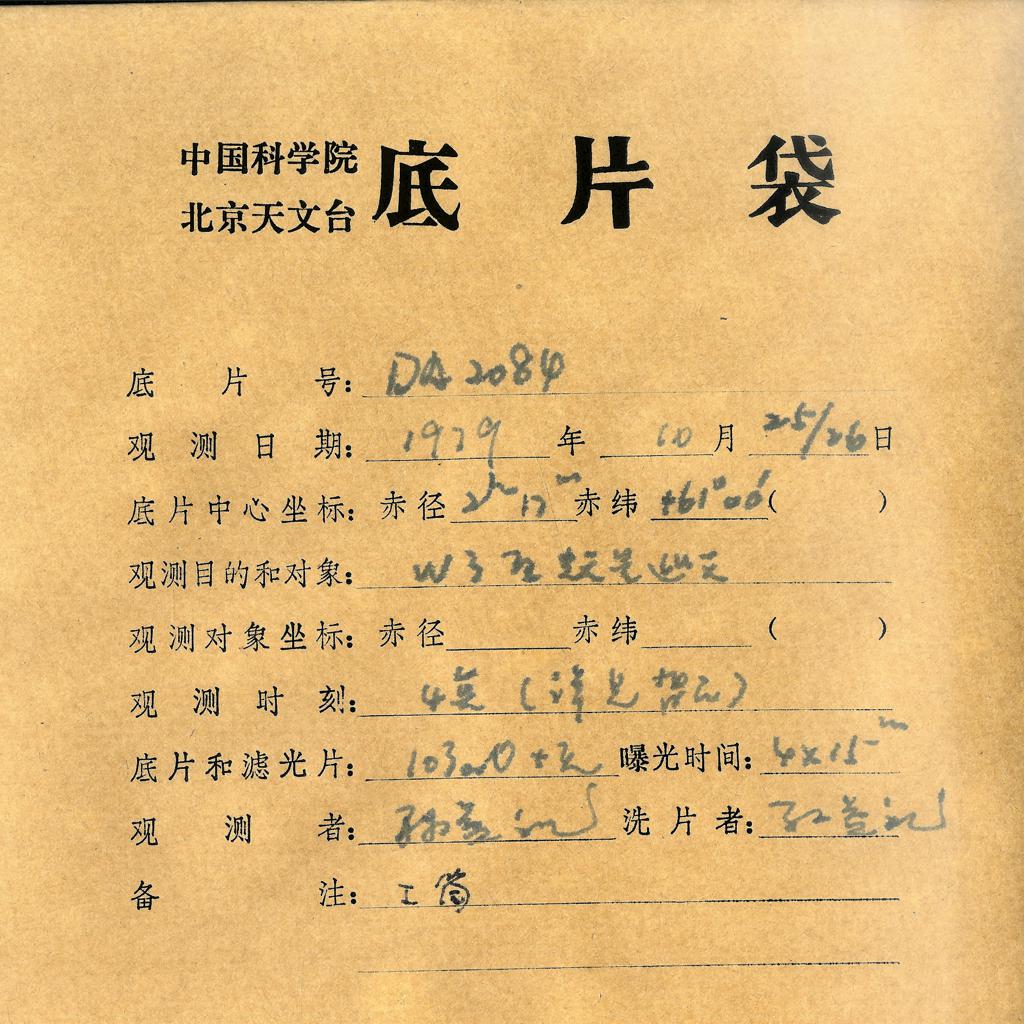 中国科学院
北京天文台
底片袋
底片号: DA 2084
观测日期: 1979年 10月 25/26日
底片中心坐标: 赤径 2ʰ 17ᵐ 赤纬 +61°00′ ( )
观测目的和对象: W3 巡天
观测对象坐标: 赤径 赤纬 ( )
观测时刻: 4 (详见
底片和滤光片: 103aO + 无 曝光时间: 4×15ᵐ
观测者: 洗片者:
备注: I 筒